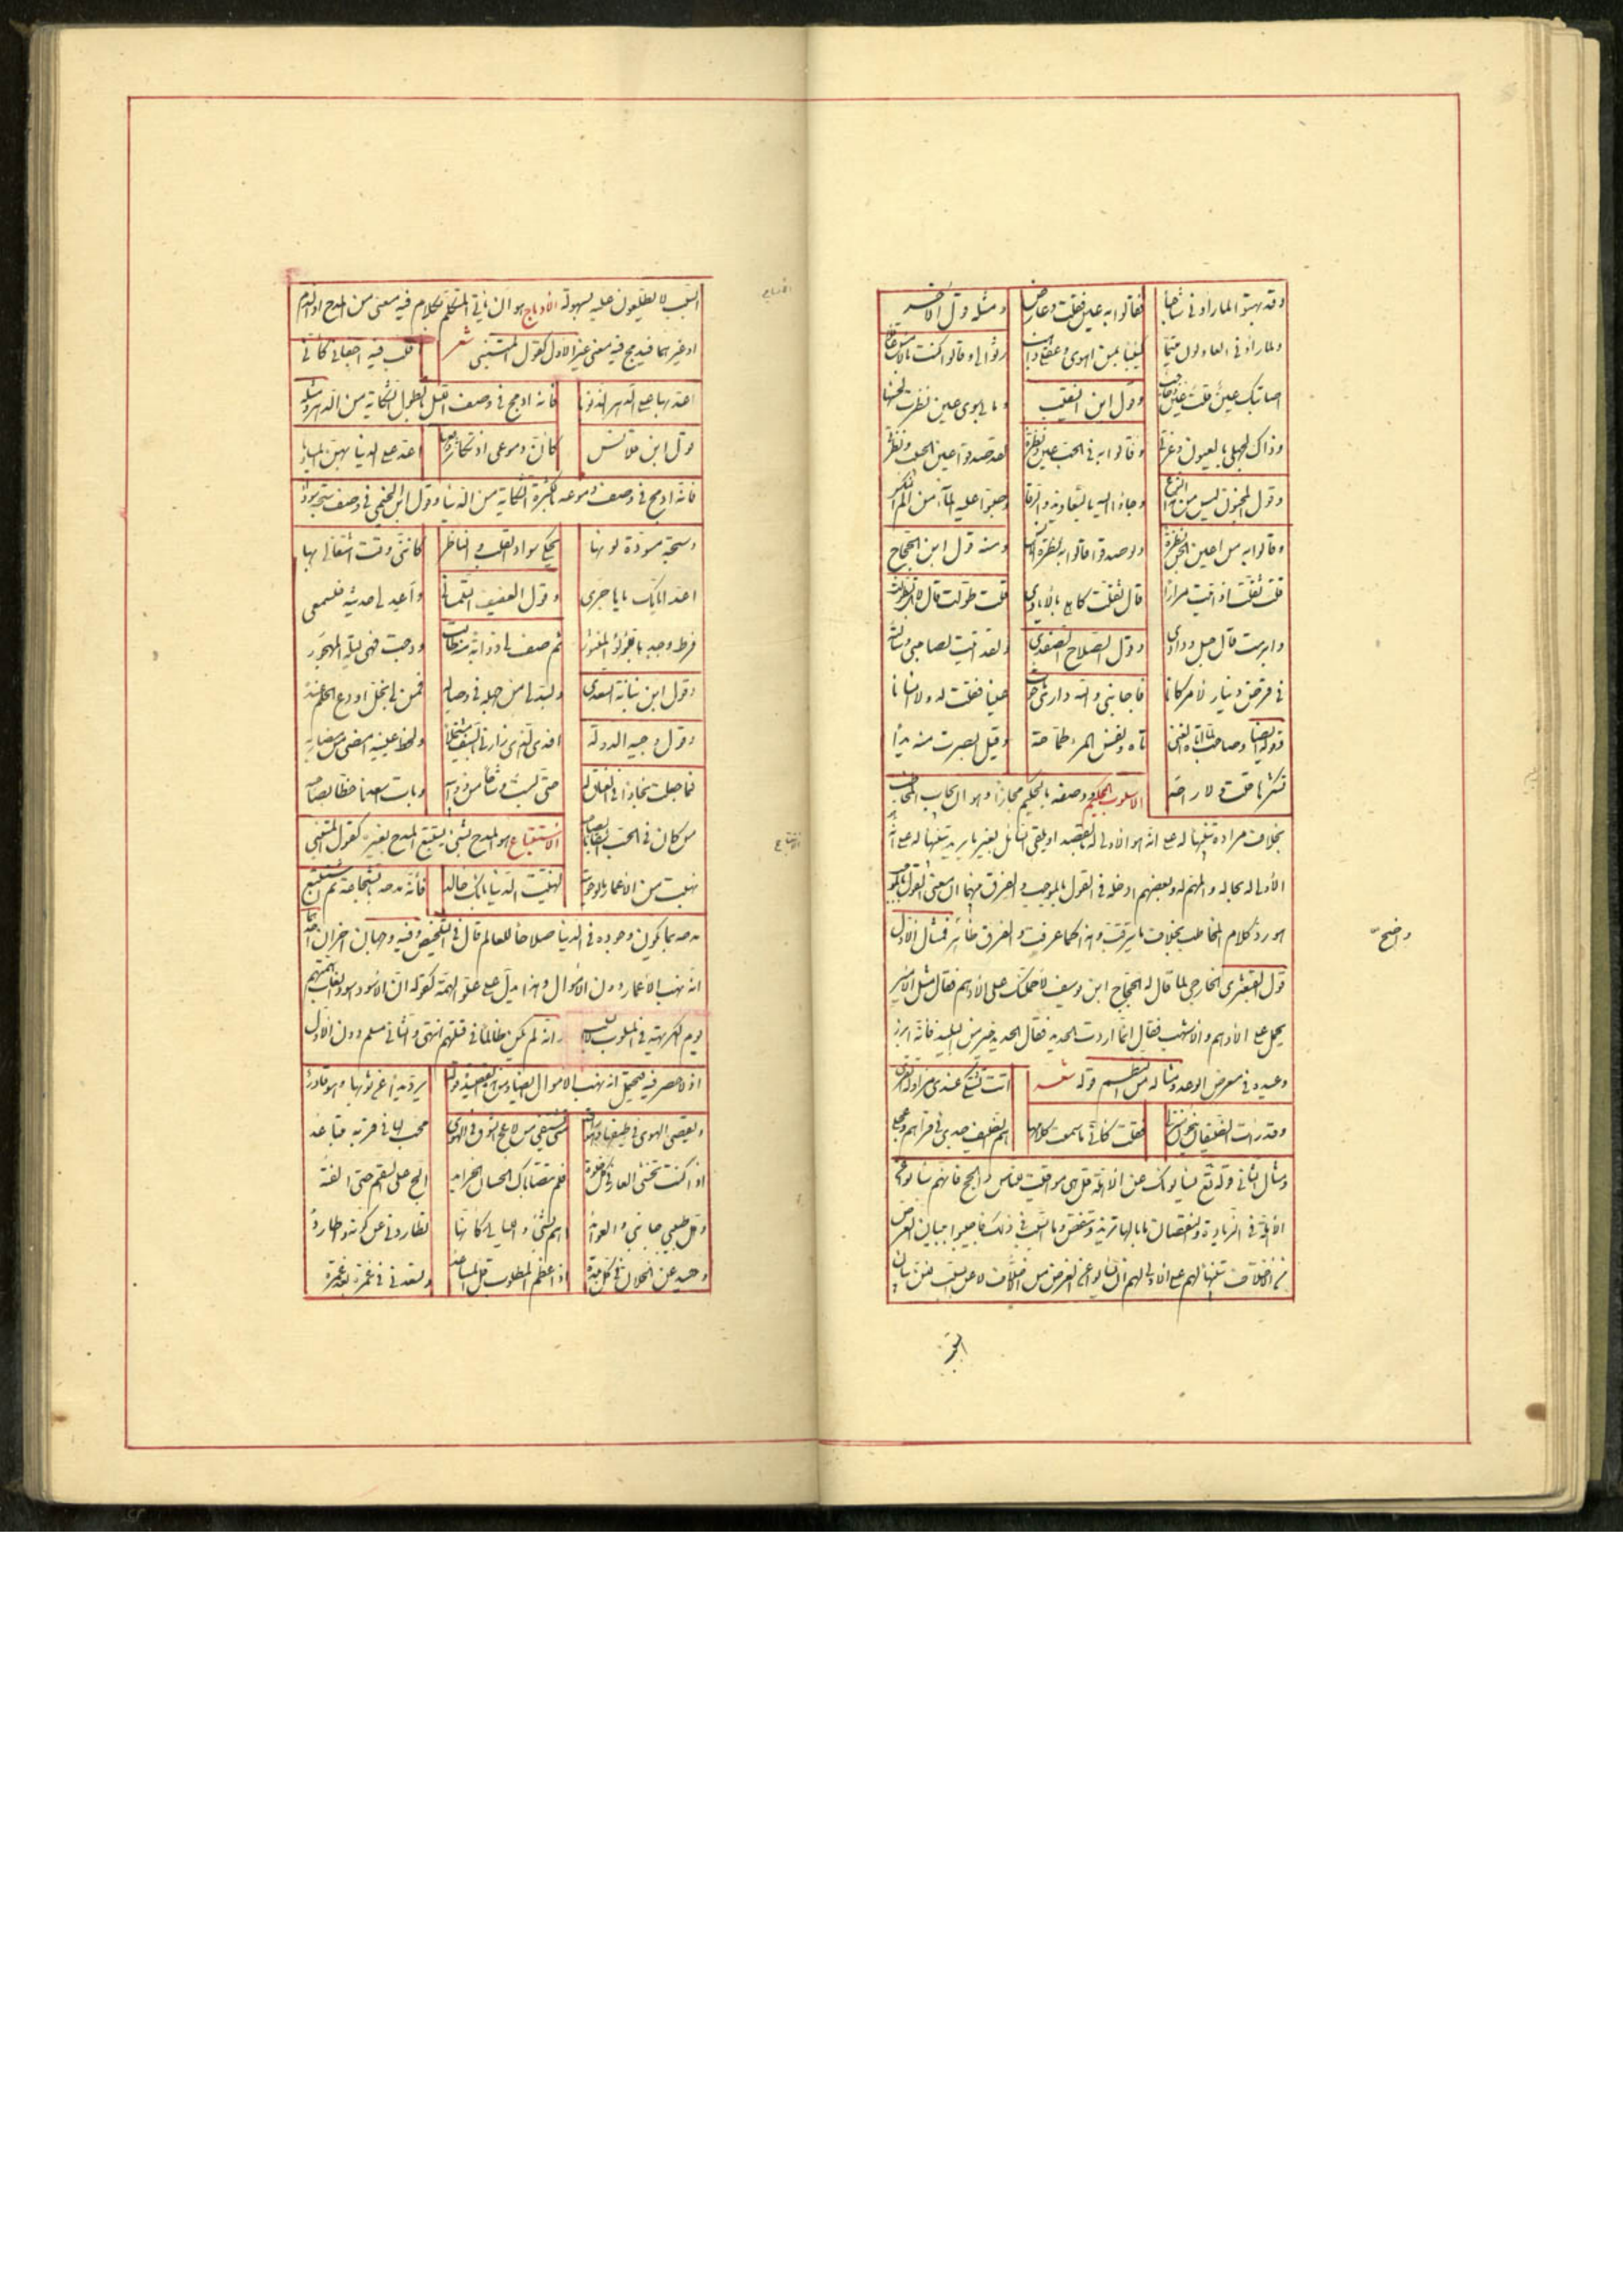 وقد بهتوا لما راوني شاحبا فقالوا به عين فقلت وعارض ومثله قول الاخر
ولما راوني العاذلون متيما كئيبا بمن اهوى وعقلي ذاهب رثوا لي وقالوا كنت بالامس عاقلا
اصابتك عين قلت عين وحاجب وقول ابن النقيب وما بي سوى عين نظرت لحسنها
وذاك لجهلي بالعيون وغرتي وقالوا به في الحب عين ونظرة لقد صدقوا عين الحبيب ونظرتي
وقول المجنون ليس من هذا النوع وجاؤا اليه بالتعاويذ والرقى وصبوا عليه الماء من الم النكس
وقالوا به من اعين الجن نظرة ولو صدقوا قالوا به نظرة الانس ومنه قول ابن الحجاج
قلت ثقلت اذ اتيت مرارا قال ثقلت كاهلي بالايادي قلت طولت قال لا بل تطولت
وابرمت قال حبل ودادي وقول الصلاح الصفدي ولقد اتيت لصاحبي وسألته
في قرض دينار لامر كانا فاجابني والله داري ما حوت عينا فقلت له ولا انسانا
وقوله ايضا وصاحب لما اتاه الغنى تاه ونفس المرء طماحة وقيل ابصرت منه يدا
تشكرها قلت ولا راحة الاسلوب الحكيم ووصفه بالحكيم مجازا وهو ان يجاب المخاطب
بخلاف مراده تنبيها له على انه هو الاولى له بالقصد او يلقى السائل بغير ما يريد تنبيها له على انه
الأولى له بحاله والمهم له وبعضهم ادخله في القول بالموجب والفرق بينهما ان معنى القول بالموجب
هو رد كلام المخاطب بخلاف ما يترقب وهذا كما عرفت والفرق ظاهر فمثال الاول
قول القبعثرى الخارجي لما قال له الحجاج ابن يوسف لاحملنك على الأدهم فقال مثل الامير
يحمل على الأدهم والاشهب فقال انما اردت الحديد فقال الحديد خير من البليد فانه ابرز
وعيده في معرض الوعد ومثاله من النظم قوله شعر اتت تشتكي عندي مزاولة القرى
وقد رات الضيفان ينحون منزلها فقلت كاني ما سمعت كلامها هم الضيف جدي في قراهم وعجلي
ومثال الثاني قوله تع يسألونك عن الاهلة قل هي مواقيت للناس والحج فانهم سألوا عن
الأهلة في الزيادة والنقصان ما بالها تزيد وتنقص وما السبب في ذلك فاجيبوا ببيان الغرض
من الاختلاف تنبيها لهم على ان الاولى لهم ان يسألوا عن الغرض من الاختلاف لا عن السبب
السبب
واضح
السبب لا يطلعون عليه بسهولة الادماج هو ان يأتي المتكلم بكلام فيه معنى من المدح او الذم
او غيرهما فيدمج فيه معنى غير الاول كقول المتنبي شعر اقلب فيه اجفاني كاني
اعد بها على الدهر الذنوبا فانه ادمج في وصف الليل بالطول الشكاية من الدهر ومثله
قول ابن قلاقس كان دموعي اذ تكاثر اعد على الدنيا بهن
فانه ادمج في وصف دموعه بالكثرة الشكاية من الدنيا وقول اللخمي في وصف سبحة سوداء
وسبحة مسودة لونها يحكي سواد القلب والناظر كانني وقت اشتغالي بها
اعد ايامك يا هاجري وقول العفيف التلمساني واعيد لي حديثه فلسمعي
فرط وجد بلؤلؤ المنثور ثم صف لي ذوائبه ودجت فهي ليلة المهجور
وقول ابن نباتة السعدي ولا بد لي من جهله في وصاله فمن لي بخل اودع الحلم عنده
وقول وجيه الدولة افدي الذي زارني بالسيف مشتملا ولحظ عينيه امضى من مضاربه
فما خلعت نجادي في العناق له حتى لبست وشاحا من ذوائبه وبات اسعدنا حظا بصاحبه
من كان في الحب اشقانا بصاحبه الاستتباع هو المدح بشئ يستتبع المدح بغيره كقول المتنبي
نهبت من الاعمار ما لو حويته لهنئت الدنيا بانك خالد فأنه مدحه بالشجاعة ثم استتبع
مدحه بما يكون وجوده في الدنيا صلاحا للعالم قال في التلخيص وفيه وجهان اخران احدهما
انه نهب الأعمار دون الأموال وهذا يدل على علو الهمة كقوله ان الاسود اسود الغاب همتهم
يوم الكريهة في المسلوب لا السلب انه لم يكن ظالما في قتلهم انتهى والثاني مسلم دون الأول
اذ لا حصر فيه فيحتمل انه نهب الاموال ايضا ومن القصيدة قوله يرد يدا عن ثوبها وهو قادر
ويعصي الهوى في طيفها وهو راقد متى يشتفي من لاعج الشوق في الهوى محب لها في قربه متباعد
اذا كنت تخشى العار في كل خلوة فلم تتصباك الحسان الخرائد الح علي السقم حتى الفته
ومل طبيبي جانبي والعوائد اهم بشئ والليالي كانها تطاردني عن كونه واطارد
وحيد عن الخلان في كل بلدة اذا عظم المطلوب قل المساعد وتسعدني في غمرة بعد غمرة